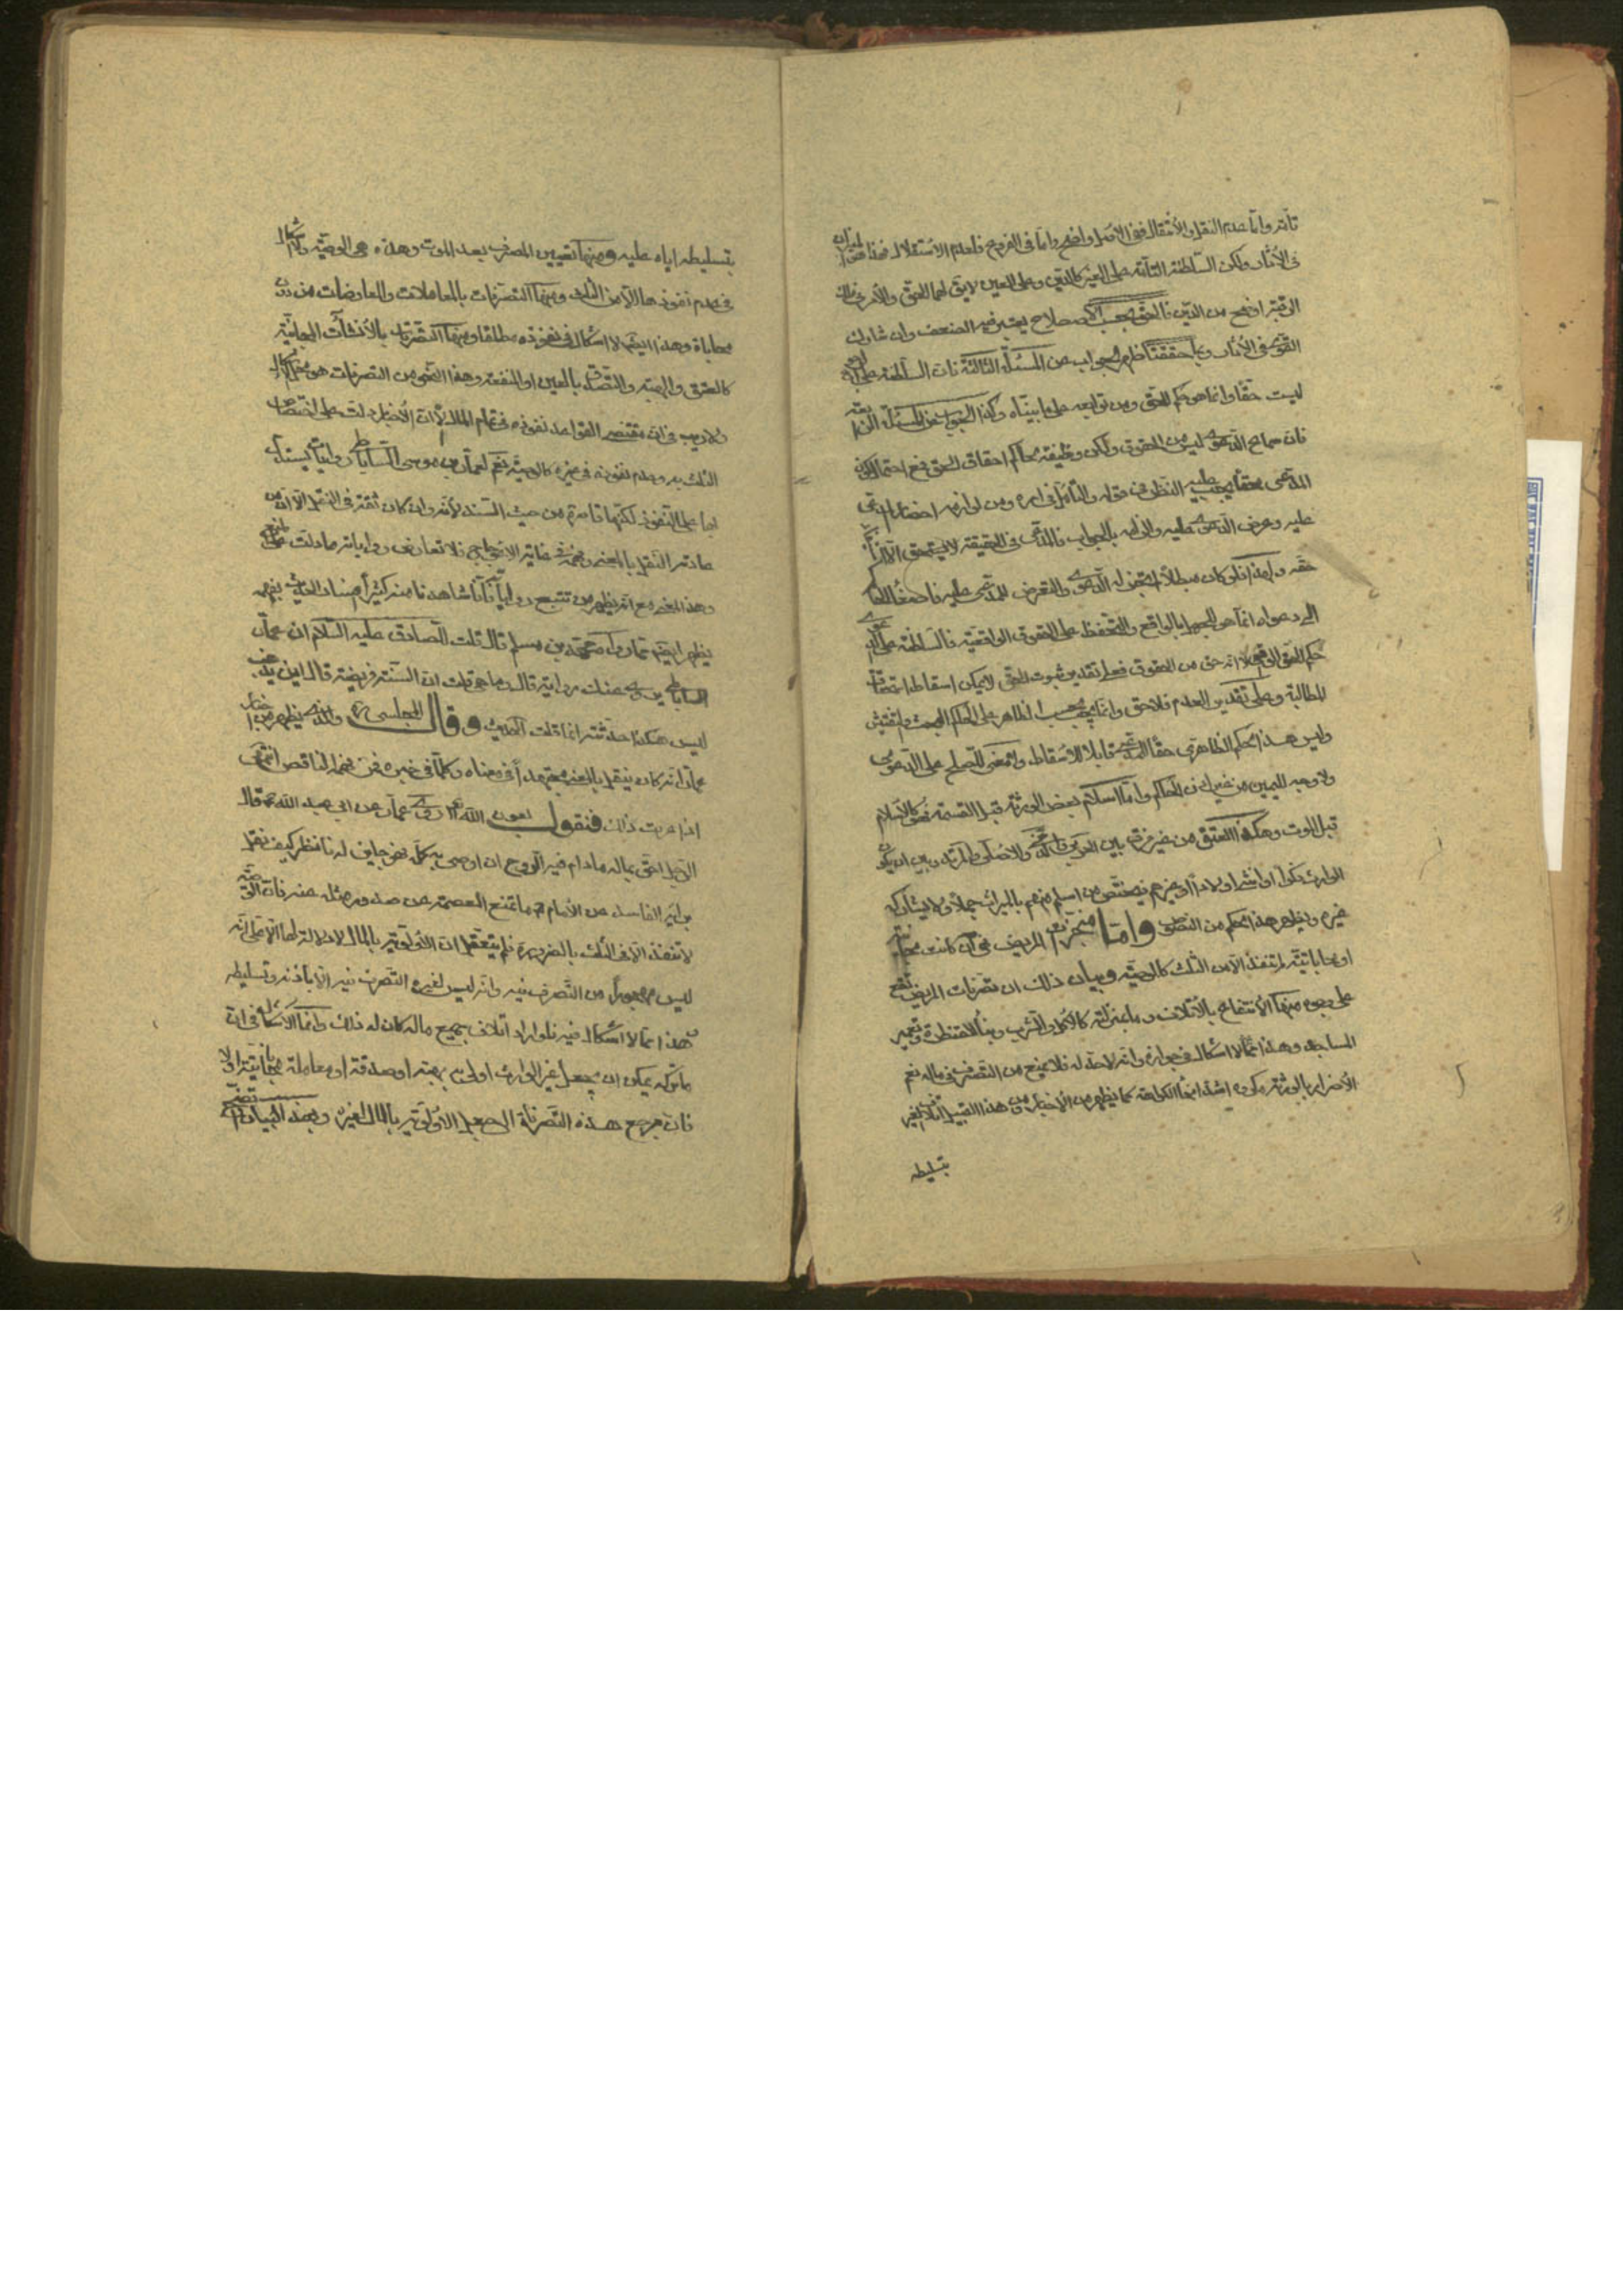 تأثر واما عدم النقل والأنتقال ففى الاصل واضح واما فى الفروع فلعدم الاستقلال فهنا
فى الأثار ولكن السلطنة التامة على الغير كالدين وعلى العين لايق لها الحق والأمر فى ملك
الرقبة اوضح من الدين فالحق بحسب الاصطلاح يعتبر فيه الضعف وان شارك
القوى فى الأثار وبما حققنا ظهر الجواب عن المسئلة الثالثة فان السلطنة على
ليست حقا وانما هو حكم للحق ومن توابعه على ما بيناه وكذا الجواب عن المسئلة الرابعة
فان سماع الدعوى ليس من الحقوق ولكن وظيفة الحاكم احقاق الحق فمع احتمال كون
المدعى محقا يجب عليه النظر فى حقه والتأمل فى امره ومن لوازمه احضار المدعى
عليه وعرض الدعوى عليه والزامه بالجواب فالمدعى فى الحقيقة لايستحق الا
حقه ولهذا لو كان مبطلا لم يجز له الدعوى والتعرض للمدعى عليه فاصغاء الحاكم
الى دعواه انما هو للجهل بالواقع والتحفظ على الحقوق الواقعية فالسلطنة على الدعوى
حكم للحق الواقعى لا انه حق من الحقوق فعلى تقدير ثبوت الحق لايمكن اسقاط استحقاق
المطالبة وعلى تقدير العدم فلاحق وانما يجب بحسب الظاهر على الحاكم البحث والتفتيش
وليس هذا الحكم الظاهرى حقا للمدعى قابلا للاسقاط ولامعنى للصلح على الدعوى
ولا وجه لليمين من غير اذن الحاكم واما اسلام بعض الورثة قبل القسمة فهو كالاسلام
قبل الموت وهكذا العتق من غير فرق بين الغريق والاصلى والمرتد وبين ان يكون
الوارث ذكورا او اناثا اولادا او غيرهم فيختص من اسلم منهم بالميراث جملا ولايشاركه
غيره ويظهر هذا الحكم من النصوص واما منجزات المريض فان كانت مجانية
او محاباتية لم تنفذ الا من الثلث كالوصية وبيان ذلك ان تصرفات المريض تقع
على وجوه منها الأنتفاع بالأتلاف وما بمنزلته كالأكل والشرب وبناء القنطرة وتعمير
المساجد وهذا مما لا اشكال فى جوازه وانه لاحد له فلا يمنع من التصرف فى ماله نعم
الأضرار بالورثة مكروه اشد انحاء الكراهة كما يظهر من الأخبار ومن هذا القبيل اتلاف الغير
بتسليطه
بتسليطه اياه عليه ومنها تعيين المصرف بعد الموت وهذه هى الوصية ولا اشكال
فى عدم نفوذها الا من الثلث ومنها التصرفات بالمعاملات والمعاوضات من دون
محاباة وهذا ايضا لا اشكال فى نفوذه مطلقا ومنها التصرفات بالأنشاآت المجانية
كالعتق والهبة والتصدق بالعين او المنفعة وهذا النحو من التصرفات هو محل الكلام
ولاريب فى ان مقتضى القواعد نفوذه فى تمام المال الا ان الأخبار دلت على اختصاص
الثلث به وعدم نفوذه فى غيره كالوصية نعم لعمار بن موسى الساباطى روايات يستدل
بها على النفوذ لكنها قاصرة من حيث السند لأنه وان كان ثقة فى النقل الا ان من
عادته النقل بالمعنى وفهمه فى غاية الاعوجاج فلا تعارض رواياته ما دلت على المنع
وهذا المعنى مع انه يظهر من تتبع رواياته فانا شاهدنا منه كثيرا من افساد الحديث بفهمه
يظهر ايضا مما رواه محمد بن مسلم قال قلت للصادق عليه السلام ان عمار
الساباطى يروى عنك رواية قال وما هى قلت ان السنة فريضة قال اين يذهب
ليس هكذا حدثته انما قلت الحديث وقال المجلسى ره والذى يظهر من اخبار
عمار انه كان ينقل بالمعنى مجتهدا فى معناه وكلما فى خبره فمن فهمه الناقص انتهى
اذا عرفت ذلك فنقول بعون الله تعالى روى عمار عن ابى عبد الله ع قال
الرجل احق بماله مادام فيه الروح ان اوصى به كله فهو جايز له فانظر كيف نقل
برأيه الفاسد عن الأمام ع ما تمنع العصمة عن صدور مثله عنه فان الوصية
لا تنفذ الا فى الثلث بالضرورة فلم يتعقل ان الأولوية بالمال لا دلالة لها الا على انه
ليس محجورا من التصرف فيه وانه ليس لغيره التصرف فيه الا باذنه وتسليطه
فهذا مما لا اشكال فيه فلو اراد اتلاف جميع ماله كان له ذلك وانما الأشكال فى ان
ماتركه يمكن ان يجعل غير الوارث اولى به بهبته او صدقة او معاملة محاباتية او لا
فان مرجع هذه التصرفات الى جعل الاولوية بالمال لغيره وبهذا البيان